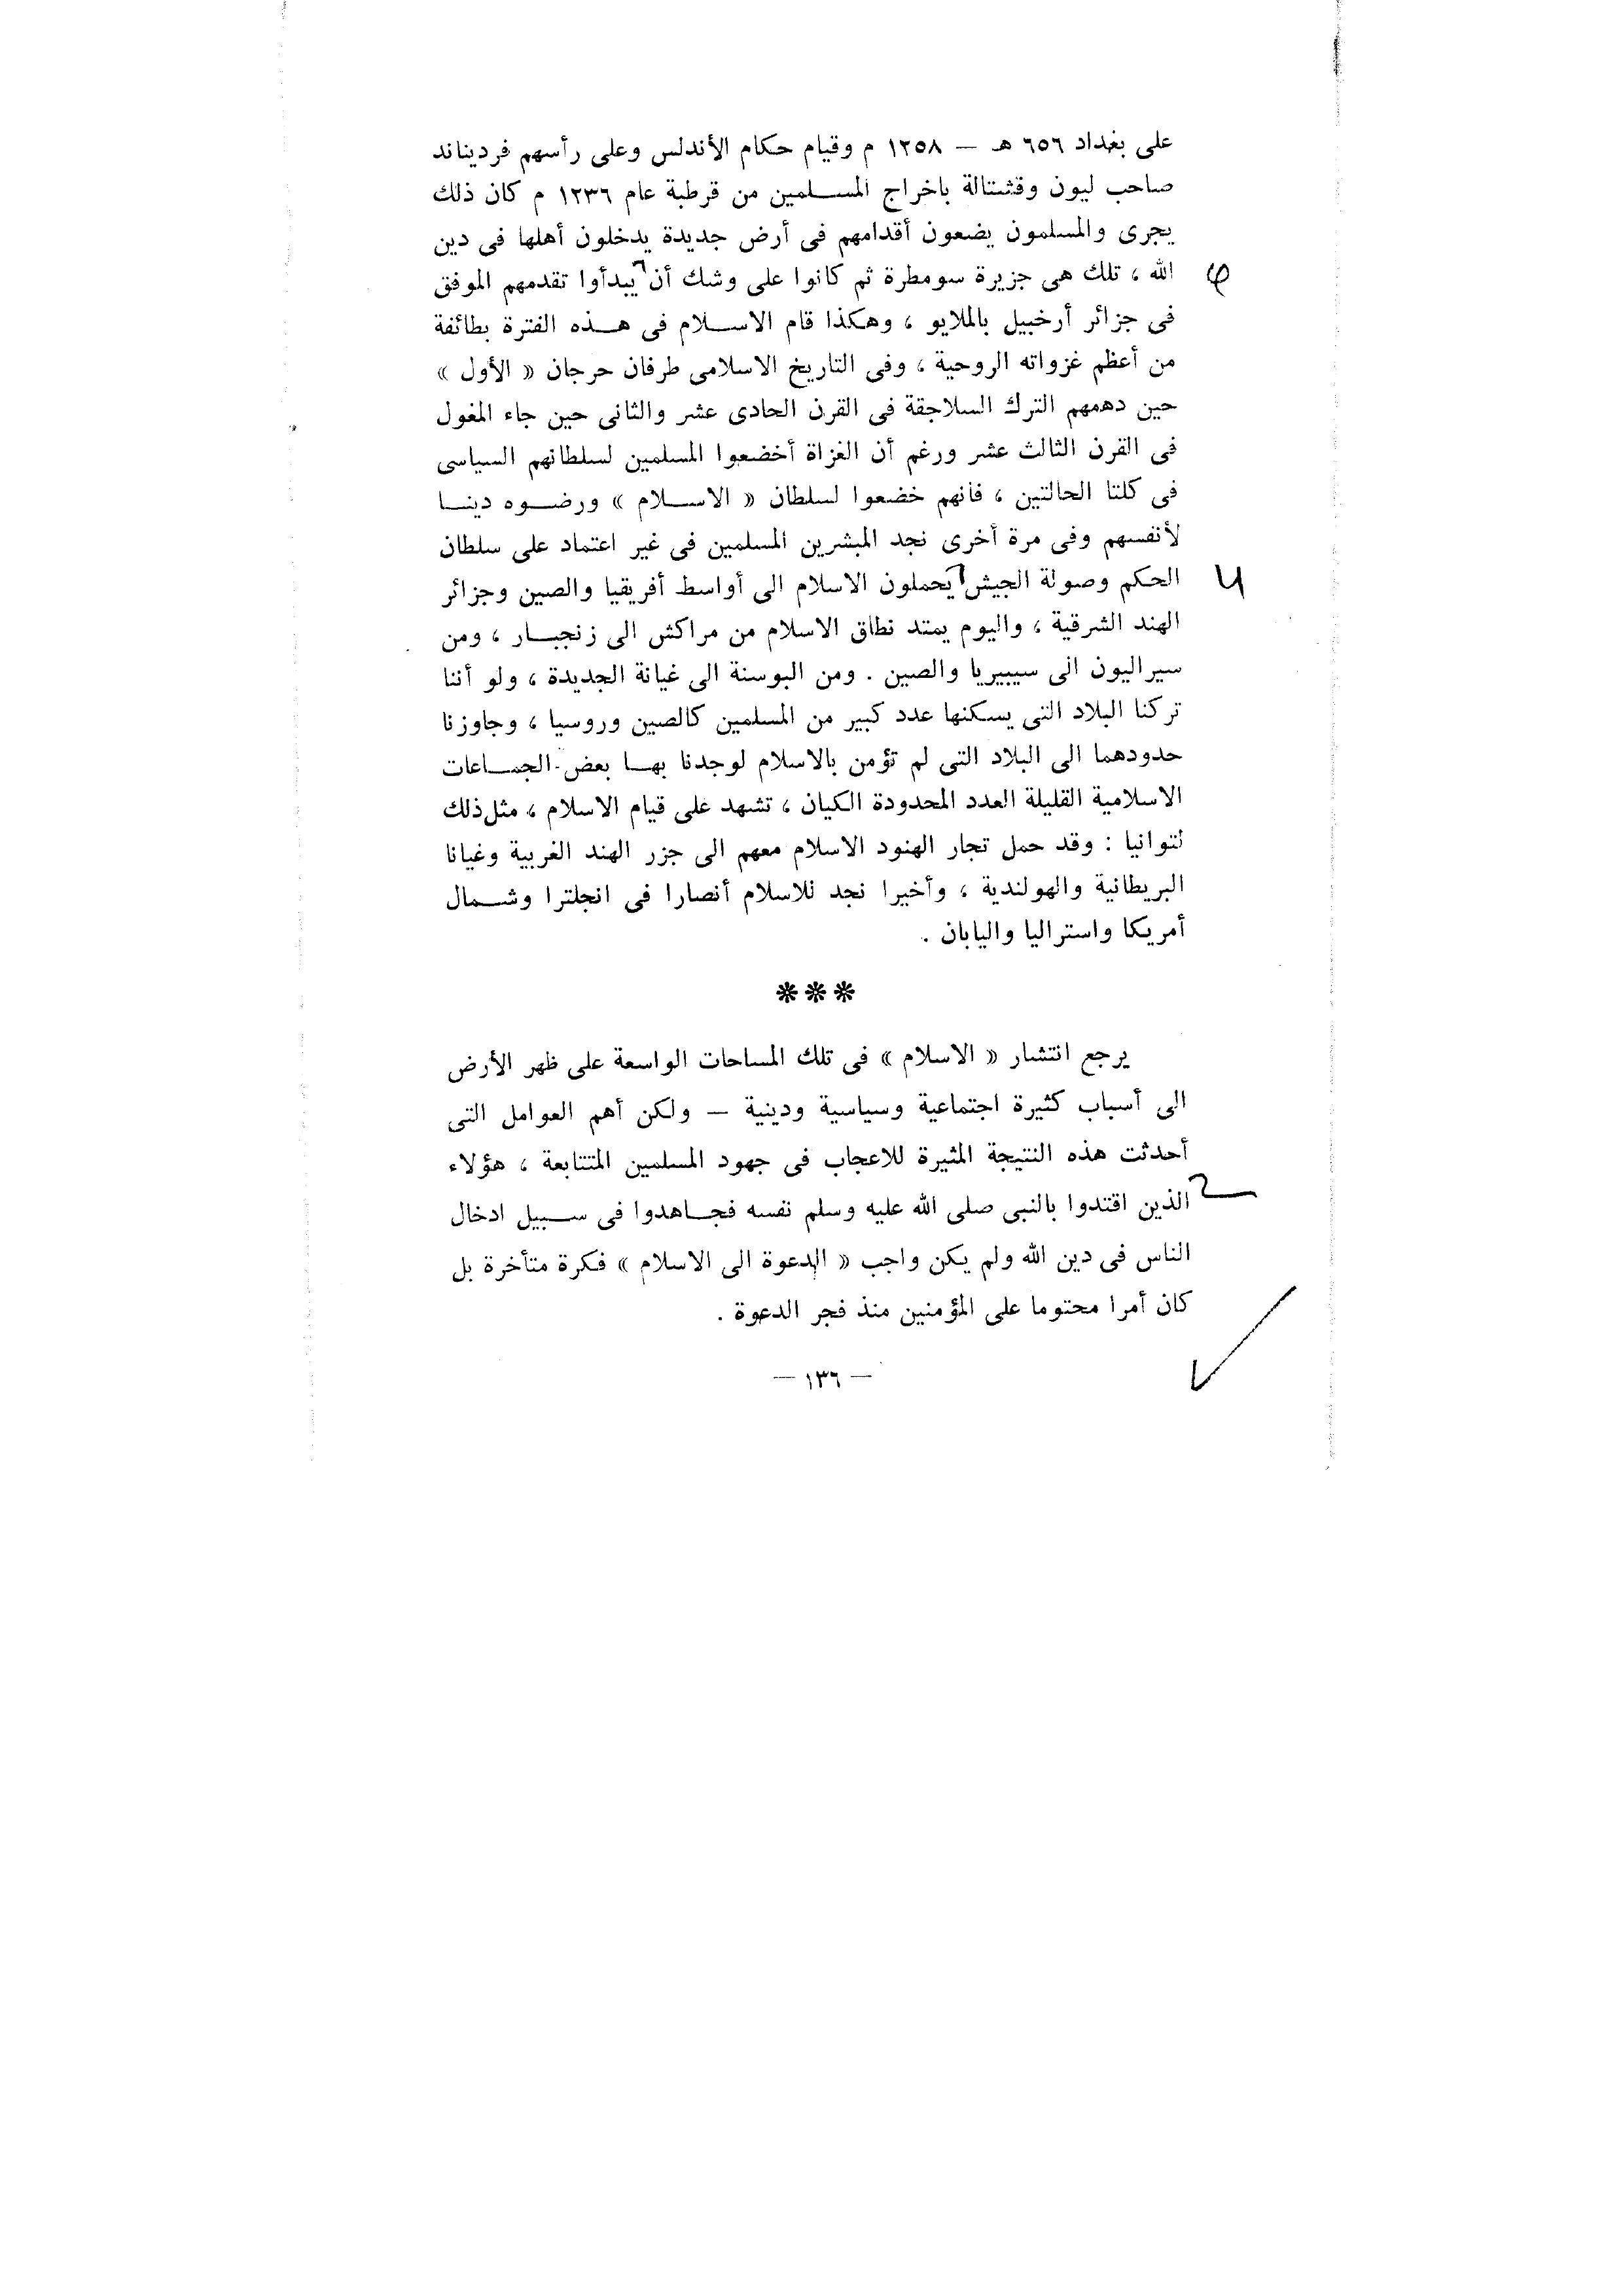 على بغداد ٦٥٦ هـ — ١٢٥٨ م وقيام حكام الأندلس وعلى رأسهم فرديناند
صاحب ليون وقشتالة باخراج المسلمين من قرطبة عام ١٢٣٦ م كان ذلك
يجرى والمسلمون يضعون أقدامهم فى أرض جديدة يدخلون أهلها فى دين
الله ، تلك هى جزيرة سومطرة ثم كانوا على وشك أن يبدأوا تقدمهم الموفق
فى جزائر أرخبيل بالملايو ، وهكذا قام الاسلام فى هذه الفترة بطائفة
من أعظم غزواته الروحية ، وفى التاريخ الاسلامى طرفان حرجان « الأول »
حين دهمهم الترك السلاجقة فى القرن الحادى عشر والثانى حين جاء المغول
فى القرن الثالث عشر ورغم أن الغزاة أخضعوا المسلمين لسلطانهم السياسى
فى كلتا الحالتين ، فانهم خضعوا لسلطان « الاسلام » ورضوه دينا
لأنفسهم وفى مرة أخرى نجد المبشرين المسلمين فى غير اعتماد على سلطان
الحكم وصولة الجيش يحملون الاسلام الى أواسط أفريقيا والصين وجزائر
الهند الشرقية ، واليوم يمتد نطاق الاسلام من مراكش الى زنجبار ، ومن
سيراليون الى سيبيريا والصين . ومن البوسنة الى غيانة الجديدة ، ولو أننا
تركنا البلاد التى يسكنها عدد كبير من المسلمين كالصين وروسيا ، وجاوزنا
حدودهما الى البلاد التى لم تؤمن بالاسلام لوجدنا بها بعض الجماعات
الاسلامية القليلة العدد المحدودة الكيان ، تشهد على قيام الاسلام ، مثل ذلك
لتوانيا : وقد حمل تجار الهنود الاسلام معهم الى جزر الهند الغربية وغيانا
البريطانية والهولندية ، وأخيرا نجد للاسلام أنصارا فى انجلترا وشمال
أمريكا واستراليا واليابان .
***
يرجع انتشار « الاسلام » فى تلك المساحات الواسعة على ظهر الأرض
الى أسباب كثيرة اجتماعية وسياسية ودينية — ولكن أهم العوامل التى
أحدثت هذه النتيجة المثيرة للاعجاب فى جهود المسلمين المتتابعة ، هؤلاء
الذين اقتدوا بالنبى صلى الله عليه وسلم نفسه فجاهدوا فى سبيل ادخال
الناس فى دين الله ولم يكن واجب « الدعوة الى الاسلام » فكرة متأخرة بل
كان أمرا محتوما على المؤمنين منذ فجر الدعوة .
— ١٣٦ —